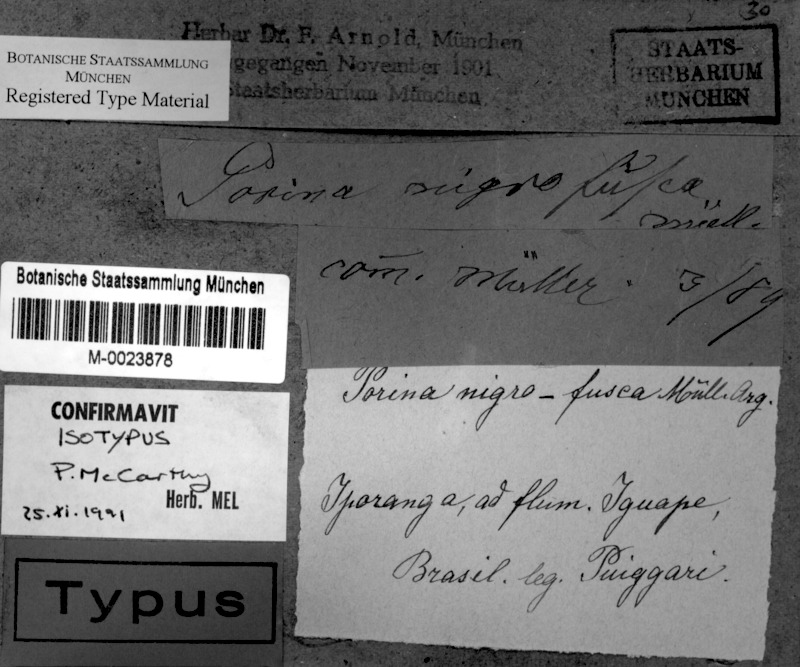 30
Herbar Dr. F. Arnold, München
gegangen November 1901
Staatsherbarium München
STAATS-
HERBARIUM
MÜNCHEN
BOTANISCHE STAATSSAMMLUNG
MÜNCHEN
Registered Type Material
Porina nigrofusca
müll.
com. Müller. 3/89
Botanische Staatssammlung München
M-0023878
CONFIRMAVIT
ISOTYPUS
P. McCarthy
Herb. MEL
25.xi.1991
Typus
Porina nigro-fusca Müll. Arg.
Iporanga, ad flum. Iguape,
Brasil. leg. Puiggari.